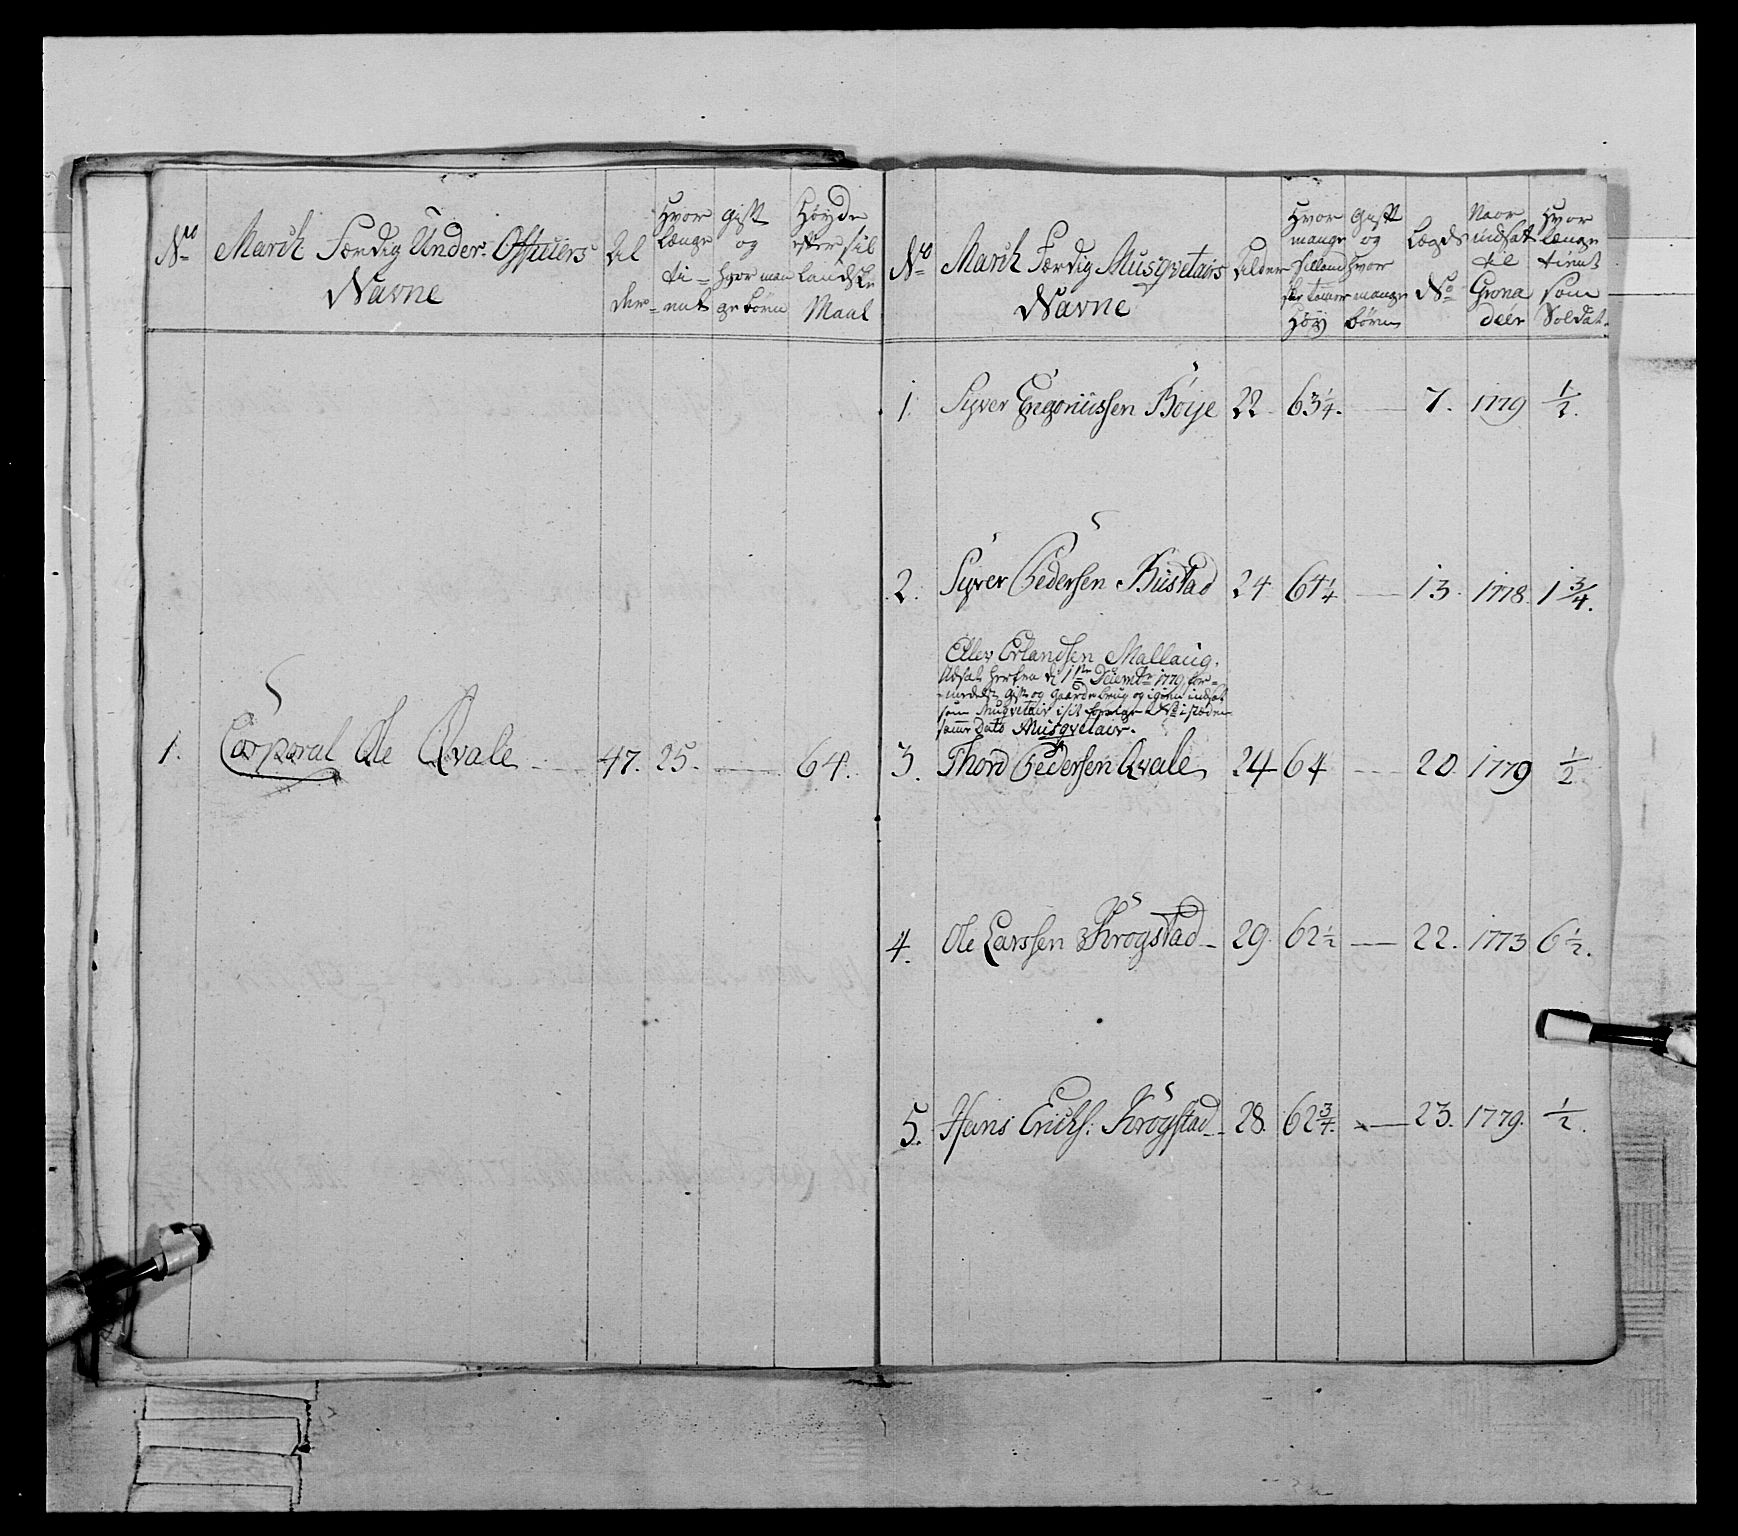 No
March Færdig Under-Officiers
Navne
Al
der
Hvor
længe
ti-
ent
gift
og
hvor man
ge børn
Høyde
efter sil
landske
Maal
1. Corporal Ole Qvale 47. 25. 64.
No
March Færdig Musqvetairs
Navne
Alder
Hvor
mange
Høy
gift
og
hvor
mange
børn
Lægds
No
Naar
indsat
til
Grena
deer
Hvor
længe
tient
som
Soldat.
1. Syver Gregoriussen Böije 22 63 1/4. 7. 1779 1/2.
2. Syver Pedersen Rustad 24 64 1/4 13. 1778. 1 3/4.
Ellev Erlandsen Mallaug.
Udsat herfra d 1te Decembr 1779 for-
medelst gift og gaardebrug og igien indsat
som Musqvetair i sit
samme Dato Musqvetair.
3. Thord Pedersen Qvale 24 64 20. 1779 1/2.
4. Ole Larssen Krogstad 29. 62 1/2 22. 1773 6 1/2.
5. Hans Erichs: Krogstad 28. 62 3/4. 23. 1779. 1/2.